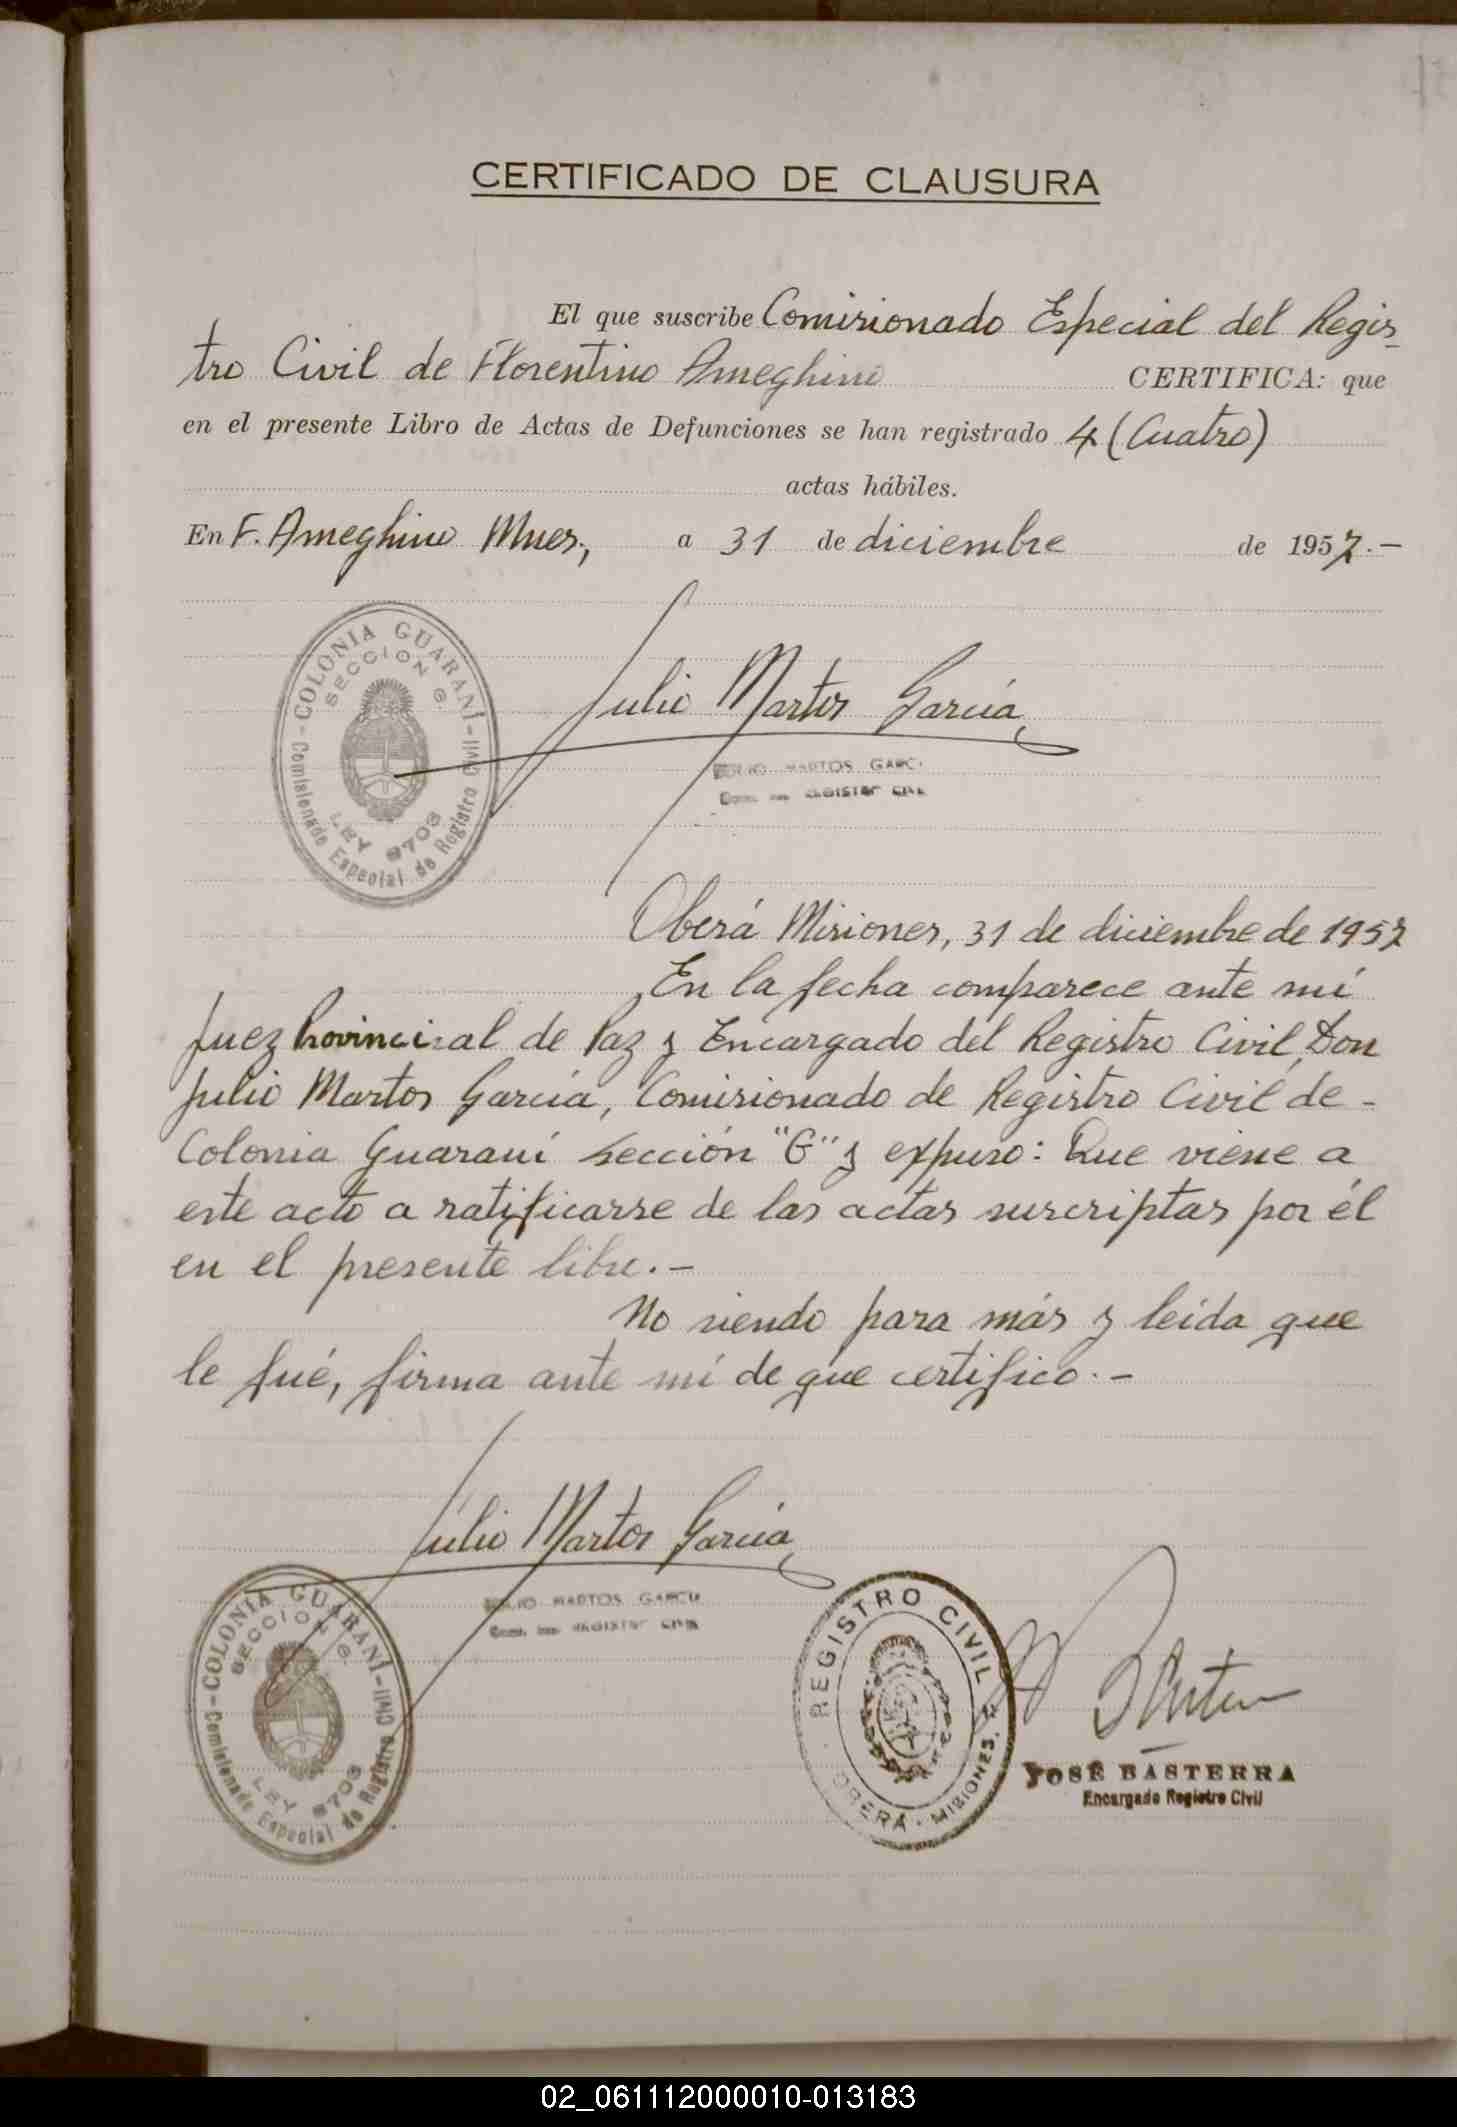 CERTIFICADO DE CLAUSURA
El que suscribe Comisionado Especial del Regis-
tro Civil de Florentino Ameghino CERTIFICA: que
en el presente Libro de Actas de Defunciones se han registrado 4 (Cuatro)
actas hábiles.
En F. Ameghino Mnes, a 31 de diciembre de 1957.-
COLONIA GUARANÍ - Comisionado Especial de Registro Civil -
SECCION G.
LEY 8703
Julio Martos García
JULIO MARTOS GARCI
REGISTRO CIVIL
Oberá Misiones, 31 de diciembre de 1957
En la fecha comparece ante mí
Juez Provincial de Paz y Encargado del Registro Civil, Don
Julio Martos García, Comisionado de Registro Civil de -
Colonia Guaraní Sección "G" y expuso: Que viene a
este acto a ratificarse de las actas suscriptas por él
en el presente libro.-
No siendo para más y leída que
le fué, firma ante mí de que certifico.-
Julio Martos García
JULIO MARTOS GARCIA
REGISTRO CIVIL
COLONIA GUARANÍ - Comisionado Especial de Registro Civil -
SECCION G.
LEY 8703
REGISTRO CIVIL
OBERÁ - MISIONES.
JOSÉ BASTERRA
Encargado Registro Civil
02_061112000010-013183